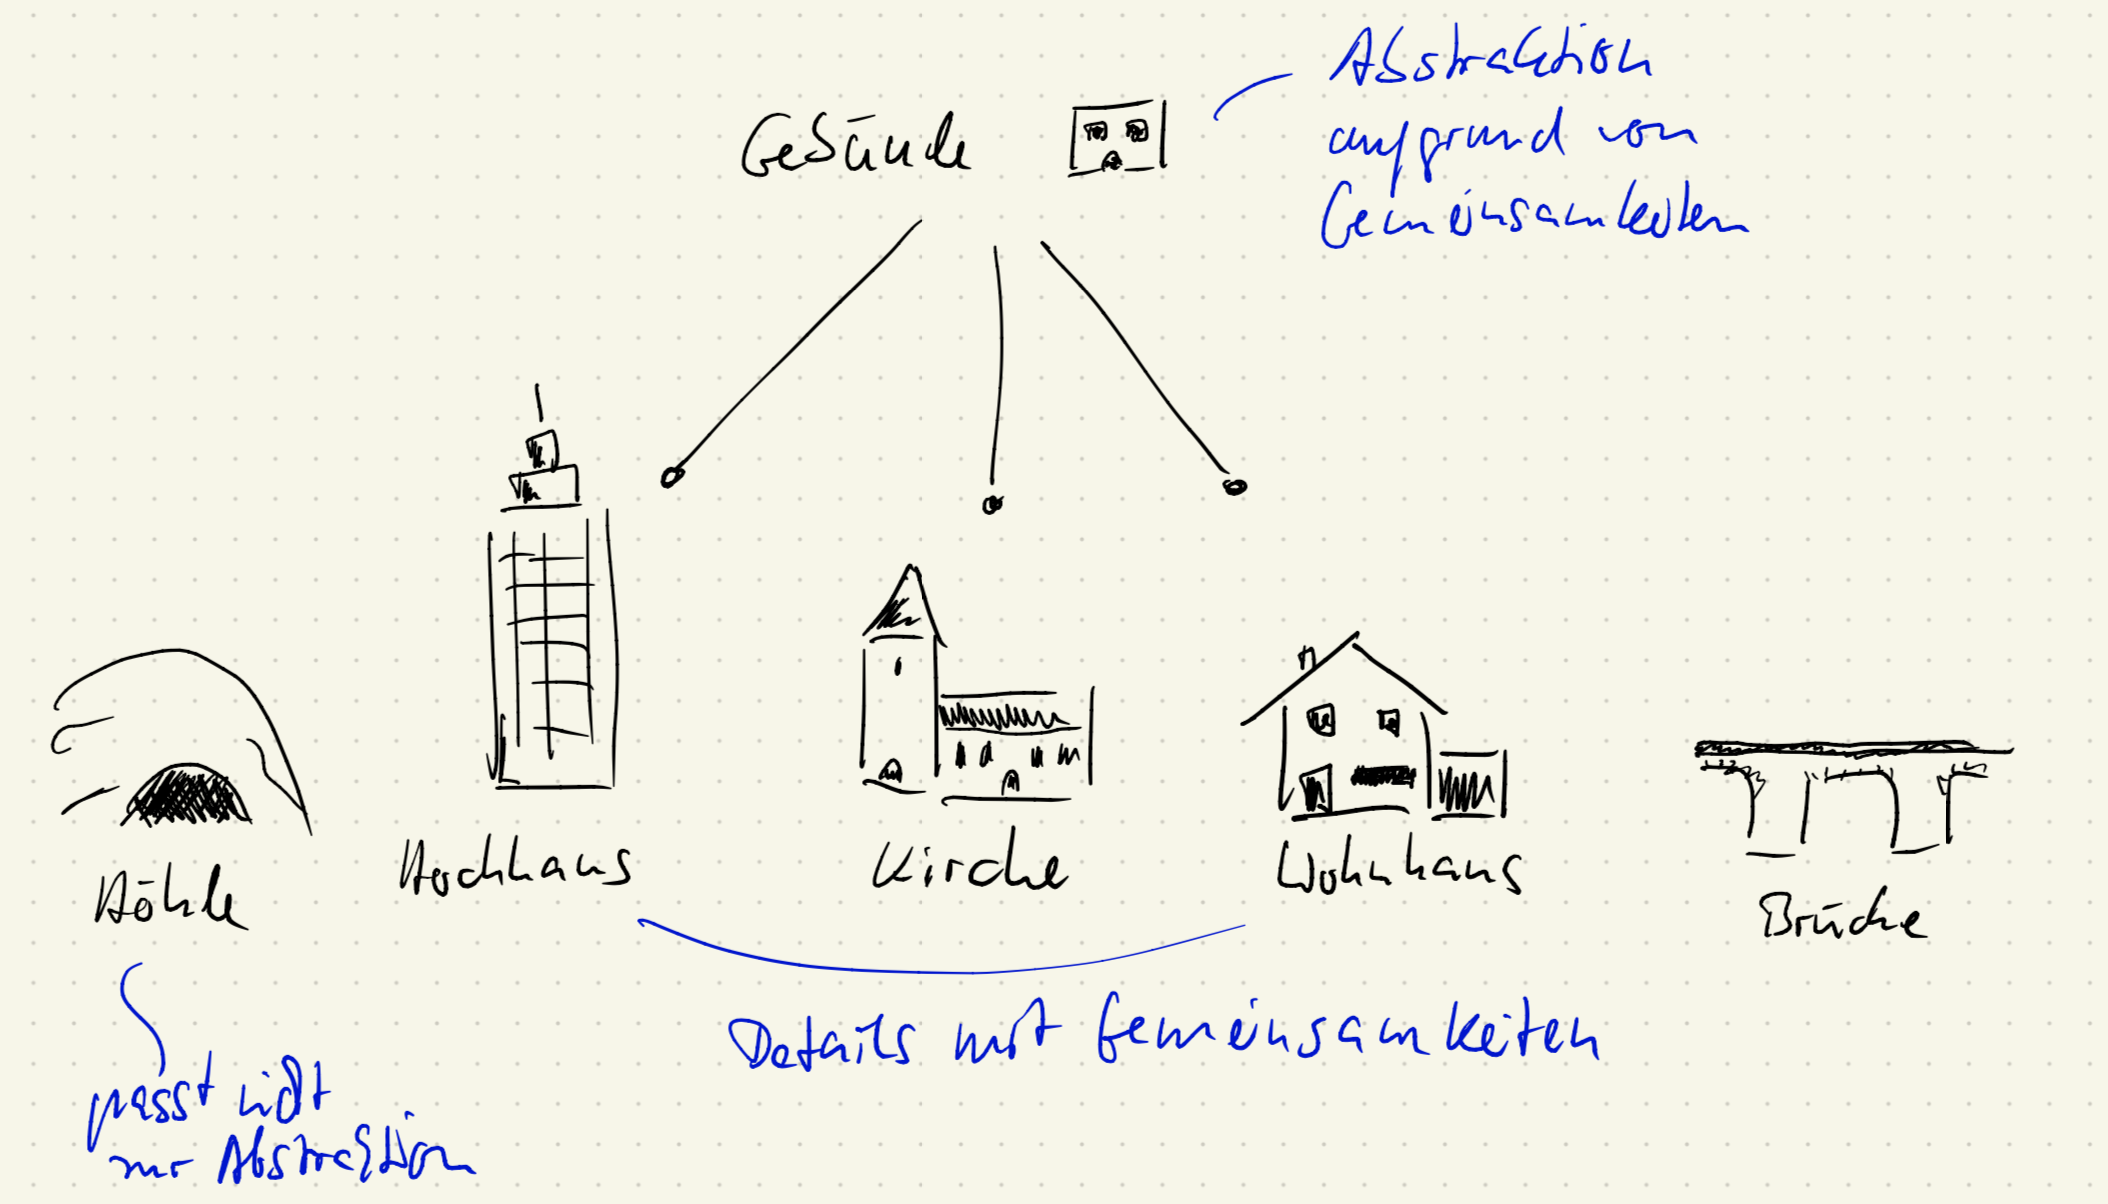 Gebäude
Abstraktion
aufgrund von
Gemeinsamkeiten
Höhle
Hochhaus
Kirche
Wohnhaus
Brücke
Details mit Gemeinsamkeiten
passt nicht
zur Abstraktion